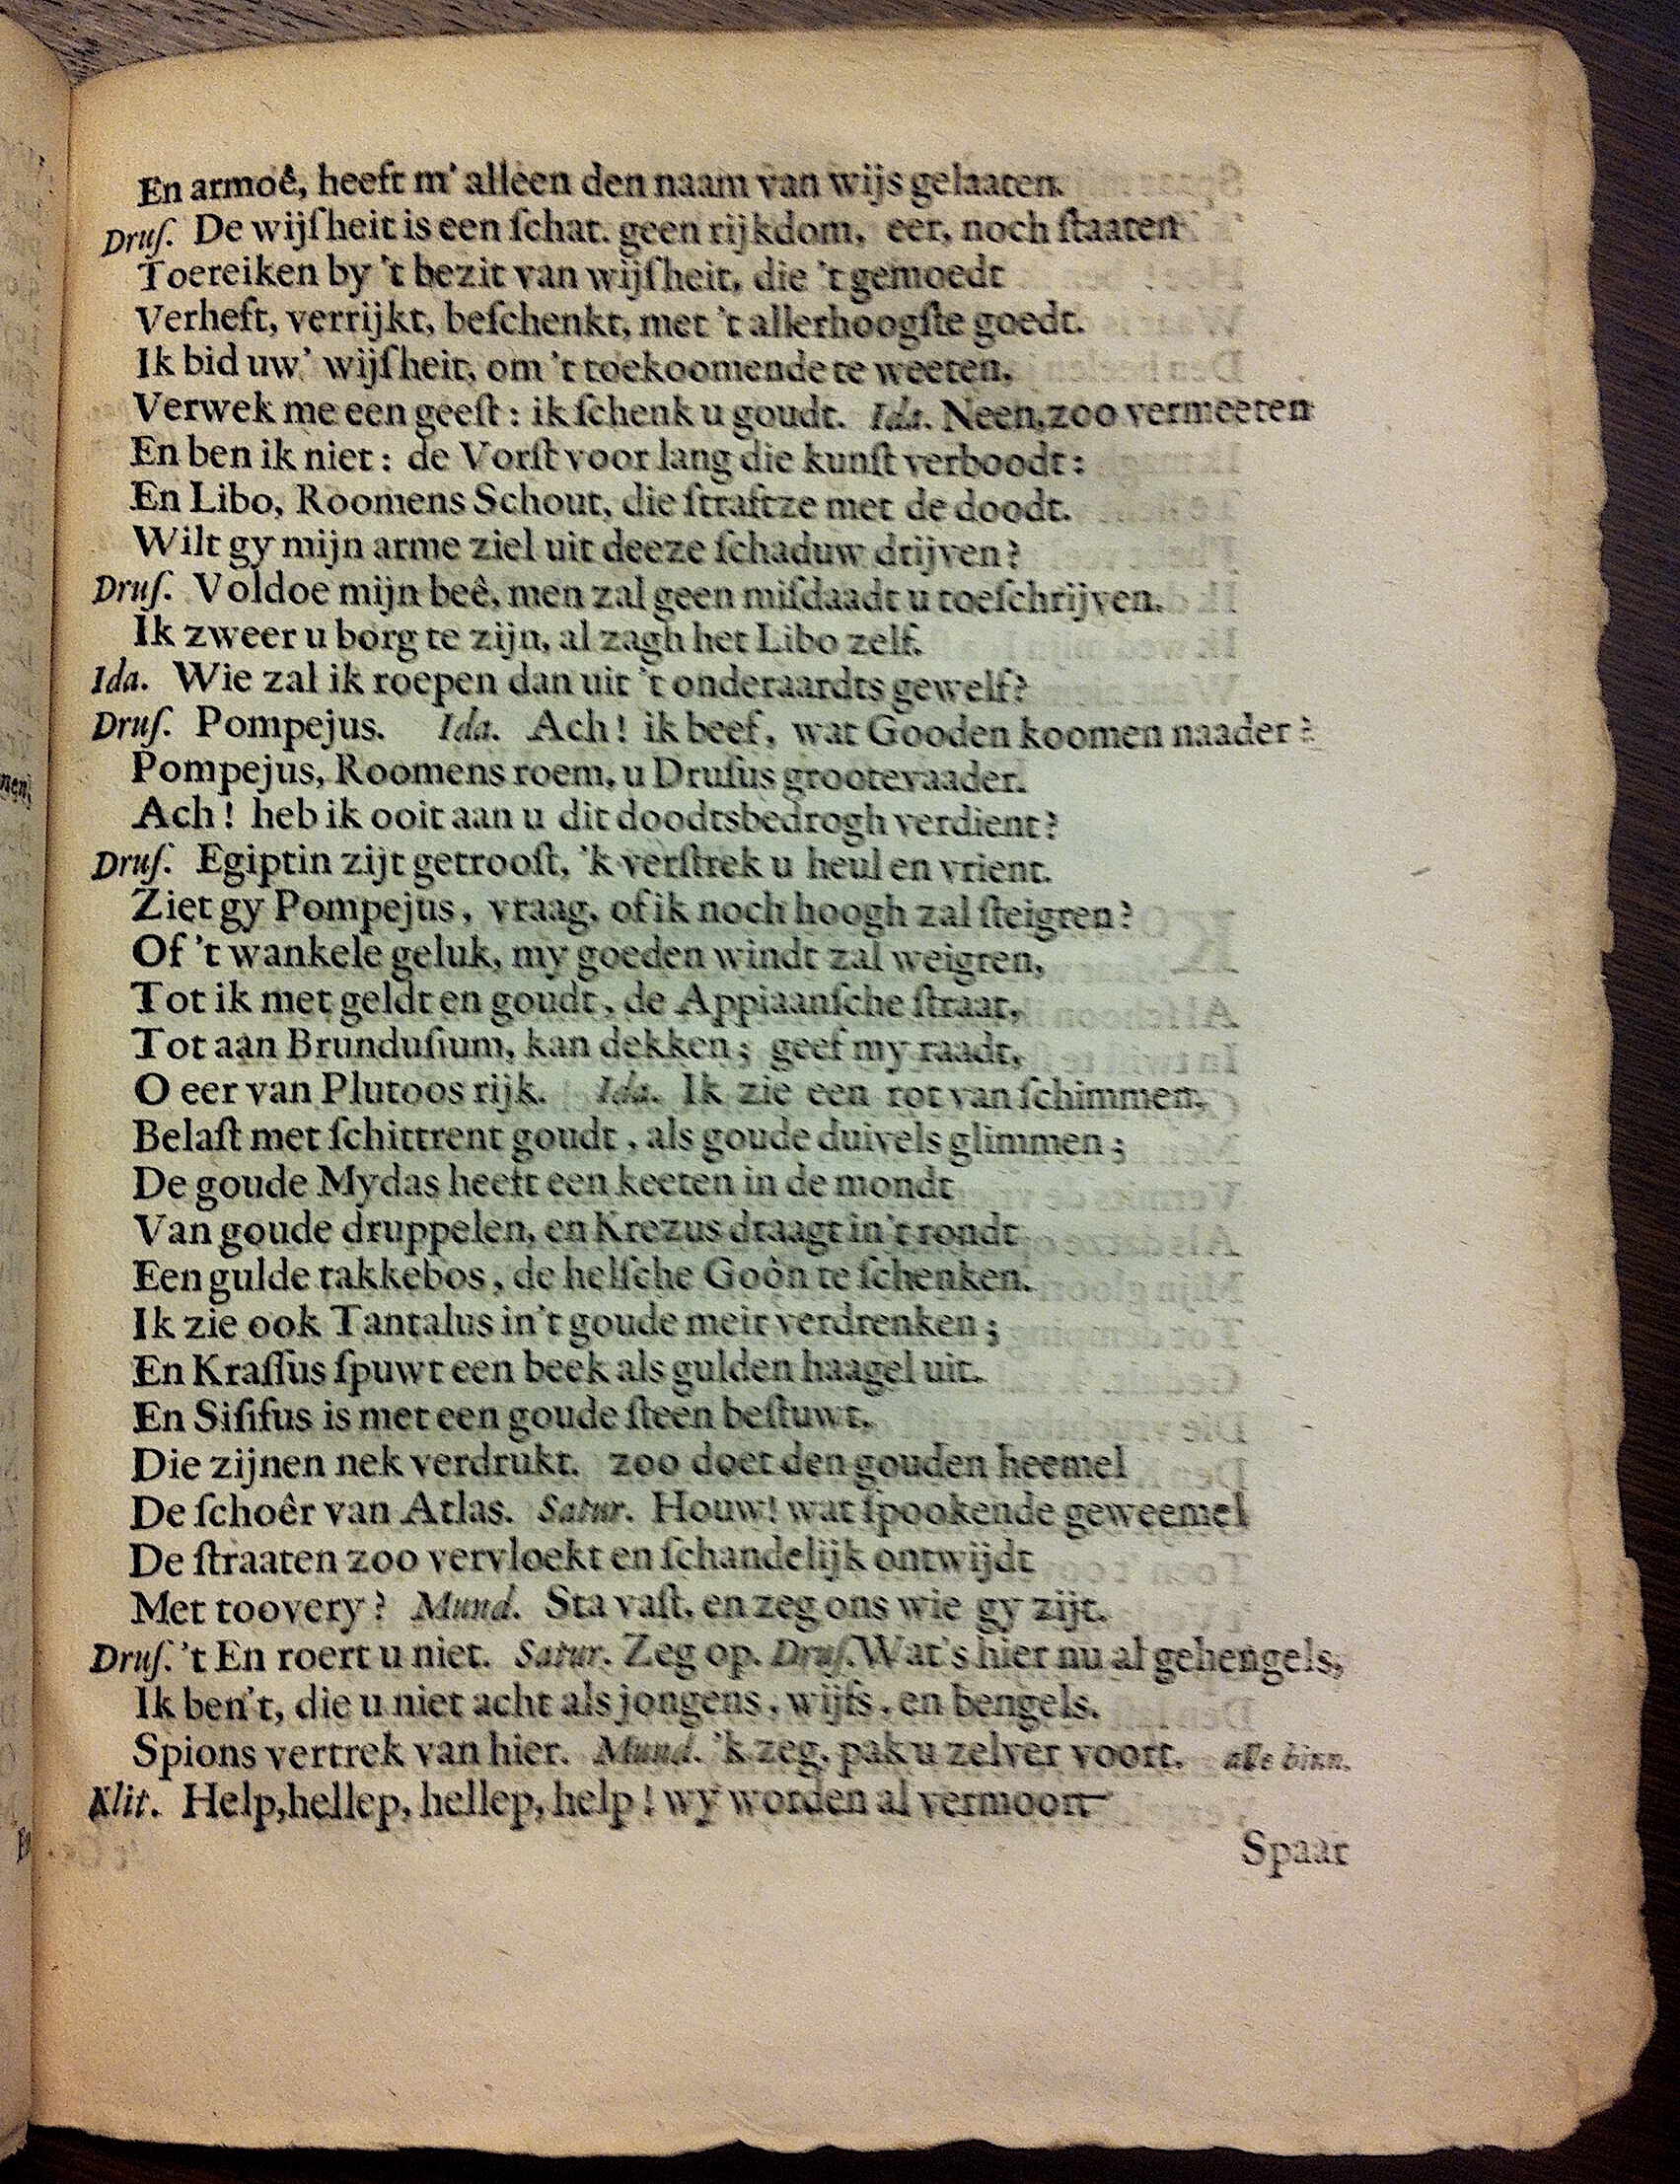 En armoê, heeft m' alleen den naam van wijs gelaaten.
Druſ. De wijſheit is een ſchat. geen rijkdom, eer, noch ſtaaten
Toereiken by 't bezit van wijſheit, die 't gemoedt
Verheft, verrijkt, beſchenkt, met 't allerhoogſte goedt.
Ik bid uw' wijſheit, om 't toekoomende te weeten.
Verwek me een geeſt: ik ſchenk u goudt. Ida. Neen, zoo vermeeten
En ben ik niet: de Vorſt voor lang die kunſt verboodt:
En Libo, Roomens Schout, die ſtraftze met de doodt.
Wilt gy mijn arme ziel uit deeze ſchaduw drijven?
Druſ. Voldoe mijn beê, men zal geen miſdaadt u toeſchrijven.
Ik zweer u borg te zijn, al zagh het Libo zelf.
Ida. Wie zal ik roepen dan uit 't onderaardts gewelf?
Druſ. Pompejus. Ida. Ach! ik beef, wat Gooden koomen naader?
Pompejus, Roomens roem, u Druſus grootevaader.
Ach! heb ik ooit aan u dit doodtsbedrogh verdient?
Druſ. Egiptin zijt getrooſt, 'k verſtrek u heul en vrient.
Ziet gy Pompejus, vraag, of ik noch hoogh zal ſteigren?
Of 't wankele geluk, my goeden windt zal weigren,
Tot ik met geldt en goudt, de Appiaanſche ſtraat,
Tot aan Brunduſium, kan dekken; geef my raadt,
O eer van Plutoos rijk. Ida. Ik zie een rot van ſchimmen,
Belaſt met ſchittrent goudt, als goude duivels glimmen;
De goude Mydas heeft een keeten in de mondt
Van goude druppelen, en Krezus draagt in't rondt
Een gulde takkebos, de helſche Goôn te ſchenken.
Ik zie ook Tantalus in't goude meir verdrenken;
En Kraſſus ſpuwt een beek als gulden haagel uit.
En Siſifus is met een goude ſteen beſtuwt,
Die zijnen nek verdrukt. zoo doet den gouden heemel
De ſchoêr van Atlas. Satur. Houw! wat ſpookende geweemel
De ſtraaten zoo vervloekt en ſchandelijk ontwijdt
Met toovery? Mund. Sta vaſt, en zeg ons wie gy zijt.
Druſ. 't En roert u niet. Satur. Zeg op. Druſ. Wat's hier nu al gehengels,
Ik ben't, die u niet acht als jongens, wijfs, en bengels.
Spions vertrek van hier. Mund. 'k zeg, pak u zelver voort. alle binn.
Klit. Help, hellep, hellep, help! wy worden al vermoort
Spaar